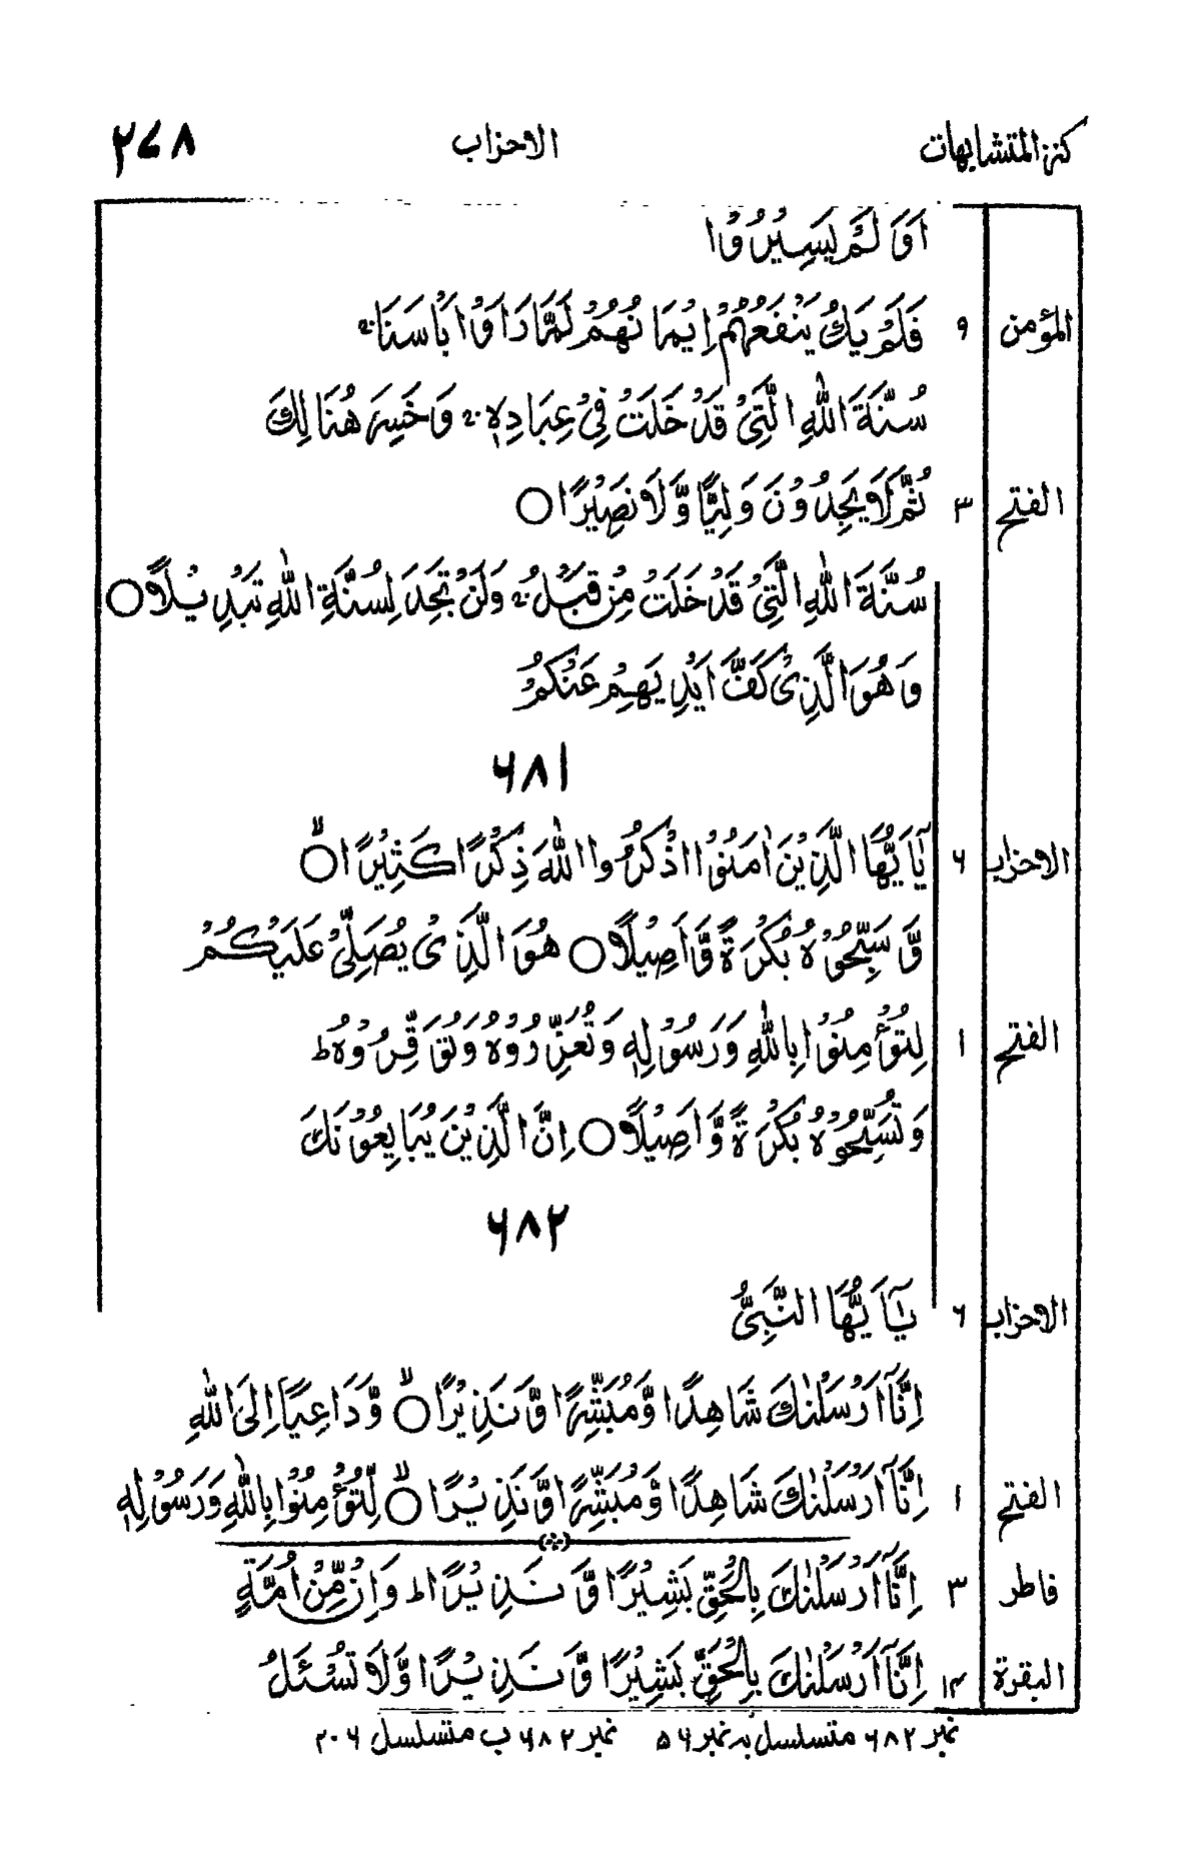 كنز المتشابهات الاحزاب ٢٧٨
اَوَ لَمْ يَسِيْرُوْا
المؤمن ٩ فَلَمْ يَكُ يَنْفَعُهُمْ اِيْمَانُهُمْ لَمَّا رَاَوْا بَاْسَنَا ؕ
سُنَّةَ اللّٰهِ الَّتِىْ قَدْ خَلَتْ فِىْ عِبَادِهٖ ۚ وَخَسِرَ هُنَالِكَ
الفتح ٣ ثُمَّ لَا يَجِدُوْنَ وَلِيًّا وَّلَا نَصِيْرًا ○
سُنَّةَ اللّٰهِ الَّتِىْ قَدْ خَلَتْ مِنْ قَبْلُ ۚ وَلَنْ تَجِدَ لِسُنَّةِ اللّٰهِ تَبْدِيْلًا ○
وَهُوَ الَّذِىْ كَفَّ اَيْدِيَهُمْ عَنْكُمْ
٦٨١
الاحزاب ٦ يٰٓاَيُّهَا الَّذِيْنَ اٰمَنُوْا اذْكُرُوا اللّٰهَ ذِكْرًا كَثِيْرًا ○ۙ
وَّسَبِّحُوْهُ بُكْرَةً وَّاَصِيْلًا ○ هُوَ الَّذِىْ يُصَلِّىْ عَلَيْكُمْ
الفتح ١ لِتُؤْمِنُوْا بِاللّٰهِ وَرَسُوْلِهٖ وَتُعَزِّرُوْهُ وَتُوَقِّرُوْهُ ط
وَتُسَبِّحُوْهُ بُكْرَةً وَّاَصِيْلًا ○ اِنَّ الَّذِيْنَ يُبَايِعُوْنَكَ
٦٨٢
الاحزاب ٦ يٰٓاَيُّهَا النَّبِىُّ
اِنَّآ اَرْسَلْنٰكَ شَاهِدًا وَّمُبَشِّرًا وَّنَذِيْرًا ○ۙ وَّدَاعِيًا اِلَى اللّٰهِ
الفتح ١ اِنَّآ اَرْسَلْنٰكَ شَاهِدًا وَّمُبَشِّرًا وَّنَذِيْرًا ○ۙ لِّتُؤْمِنُوْا بِاللّٰهِ وَرَسُوْلِهٖ
فاطر ٣ اِنَّآ اَرْسَلْنٰكَ بِالْحَقِّ بَشِيْرًا وَّنَذِيْرًا ط وَاِنْ مِّنْ اُمَّةٍ
البقرة ١٤ اِنَّآ اَرْسَلْنٰكَ بِالْحَقِّ بَشِيْرًا وَّنَذِيْرًا وَّلَا تُسْئَلُ
نمبر ٦٨٢ متسلسل به نمبر ٥٦ نمبر ٦٨٢ ب متسلسل ٢٠٦